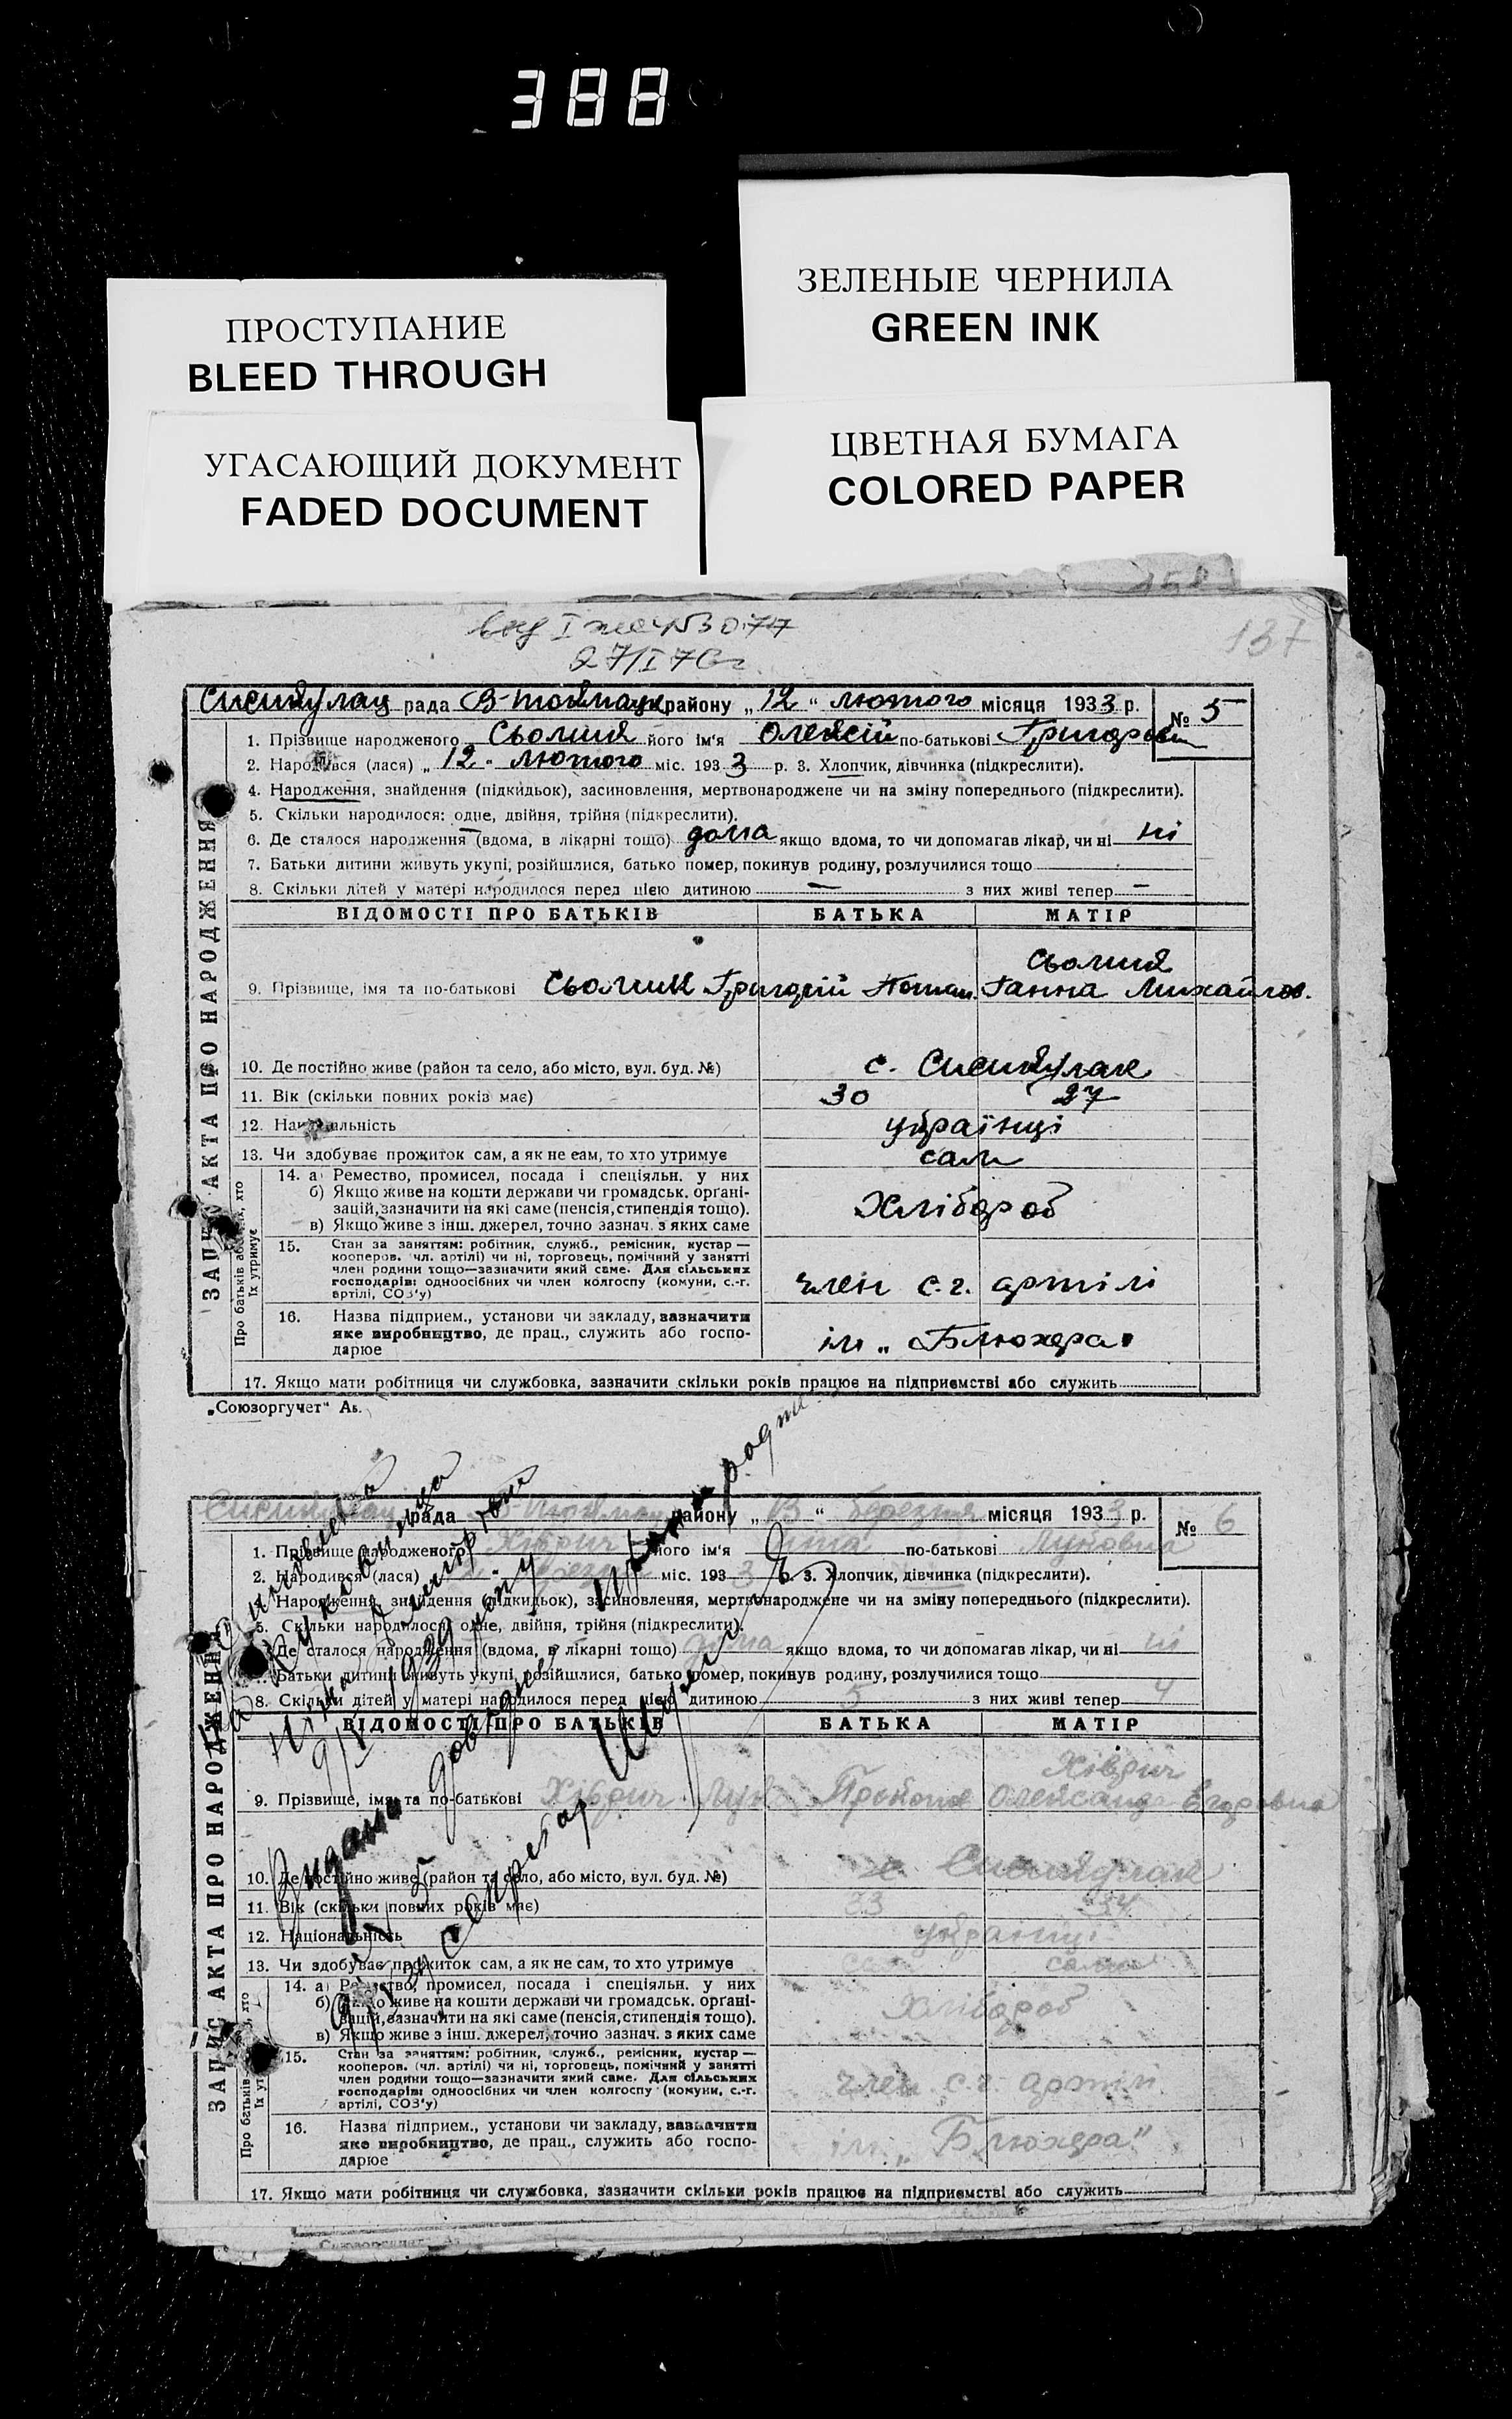 388
ЗЕЛЕНЫЕ ЧЕРНИЛА
GREEN INK
ПРОСТУПАНИЕ
BLEED THROUGH
ЦВЕТНАЯ БУМАГА
COLORED PAPER
УГАСАЮЩИЙ ДОКУМЕНТ
FADED DOCUMENT
137
рада В-Токмацк району „12“ лютого місяця 1933 р.
№ 5
ЗАПИС АКТА ПРО НАРОДЖЕННЯ
1. Прізвище народженого Сьомик його ім'я Олексій по-батькові Григорович
2. Народився (лася) „12„ лютого міс. 1933 р. 3. Хлопчик, дівчинка (підкреслити).
4. Народження, знайдення (підкидьок), засиновлення, мертвонароджене чи на зміну попереднього (підкреслити).
5. Скільки народилося: одне, двійня, трійня (підкреслити).
6. Де сталося народження (вдома, в лікарні тощо) дома якщо вдома, то чи допомагав лікар, чи ні ні
7. Батьки дитини живуть укупі, розійшлися, батько помер, покинув родину, розлучилися тощо
8. Скільки дітей у матері народилося перед цією дитиною — з них живі тепер —
ВІДОМОСТІ ПРО БАТЬКІВ БАТЬКА МАТІР
Сьомик
9. Прізвище, імя та по-батькові Сьомик Григорій Ганна Михайлов.
10. Де постійно живе (район та село, або місто, вул. буд. №) с.
11. Вік (скільки повних років має) 30 27
12. Національність українці
13. Чи здобуває прожиток сам, а як не сам, то хто утримує сам
Про батьків або тих, хто їх утримує
14. а) Ремество, промисел, посада і спеціяльн. у них
б) Якщо живе на кошти держави чи громадськ. орґані-
зацій, зазначити на які саме (пенсія, стипендія тощо).
в) Якщо живе з інш. джерел, точно зазнач. з яких саме
Хлібороб
15. Стан за заняттям: робітник, служб., ремісник, кустар —
кооперов. (чл. артілі) чи ні, торговець, помічний у занятті
член родини тощо—зазначити який саме. Для сільських
господарів: одноосібних чи член колгоспу (комуни, с.-г.
артілі, СОЗ'у)
член с.г. артілі
16. Назва підприєм., установи чи закладу, зазначити
яке виробництво, де прац., служить або госпо-
дарює
ім „Блюхера"
17. Якщо мати робітниця чи службовка, зазначити скільки років працює на підприємстві або служить
„Союзоргучет" Аь.
рада району „13“ березня місяця 1933 р.
№ 6
ЗАПИС АКТА ПРО НАРОДЖЕННЯ
1. Прізвище народженого Хіврич його ім'я по-батькові
2. Народився (лася) міс. 1933 р. 3. Хлопчик, дівчинка (підкреслити).
Народження, знайдення (підкидьок), засиновлення, мертвонароджене чи на зміну попереднього (підкреслити).
5. Скільки народилося: одне, двійня, трійня (підкреслити).
Де сталося народження (вдома, в лікарні тощо) дома якщо вдома, то чи допомагав лікар, чи ні ні
Батьки дитини живуть укупі, розійшлися, батько помер, покинув родину, розлучилися тощо
8. Скільки дітей у матері народилося перед цією дитиною 5 з них живі тепер 4
ВІДОМОСТІ ПРО БАТЬКІВ БАТЬКА МАТІР
Хіврич
9. Прізвище, імя та по-батькові Хіврич Олександ Егоровна
10. Де постійно живе (район та село, або місто, вул. буд. №) с.
11. Вік (скільки повних років має) 33 34
12. Національність українці
13. Чи здобуває прожиток сам, а як не сам, то хто утримує сам сама
14. а) Ремество, промисел, посада і спеціяльн. у них
б) Якщо живе на кошти держави чи громадськ. орґані-
зацій, зазначити на які саме (пенсія, стипендія тощо).
в) Якщо живе з інш. джерел, точно зазнач. з яких саме
Хлібороб
15. Стан за заняттям: робітник, служб., ремісник, кустар —
кооперов. (чл. артілі) чи ні, торговець, помічний у занятті
член родини тощо—зазначити який саме. Для сільських
господарів: одноосібних чи член колгоспу (комуни, с.-г.
артілі, СОЗ'у)
член с.г. артілі
16. Назва підприєм., установи чи закладу, зазначити
яке виробництво, де прац., служить або госпо-
дарює
ім „Блюхера"
17. Якщо мати робітниця чи службовка, зазначити скільки років працює на підприємстві або служить